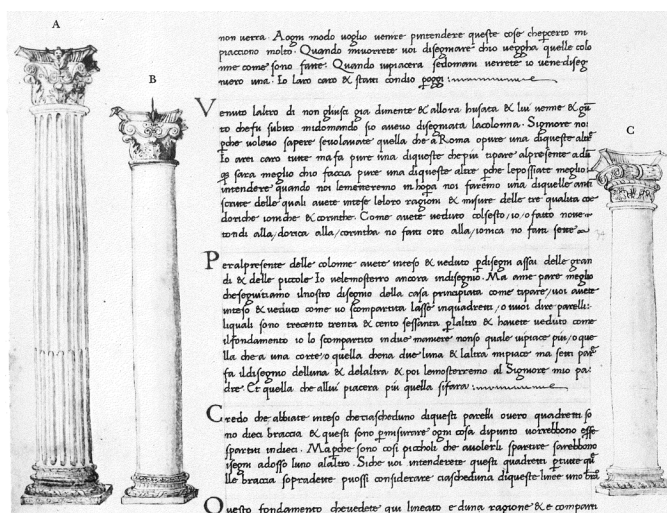 A
B
C
non verra. Aogni modo voglio venire pintendere queste cose cheperto mi
piacciono molto. Quando mivorrete voi disegniare chio veggha quelle colo
nne come sono fatte. Quando tupiacera sedomani verrete io venediseg
nero una. Io laro caro & stati condio poggi:
Venuto laltro di non gliusci gia dimente & allora husata & lui venne & gu
to chefu subito midomando sio avevo disegniata lacolonna. Signore no:
pche volevo sapere sevolavate quella che a Roma o pure una diqueste altre
Io arei caro tutte ma fa pure una diqueste chepiu tipare alpresente adu
qs sara meglio chio faccia pure una diqueste altre pche lepossiate meglio
intendere quando noi lemetteremo in hopa noi faremo una diquelle anti
scritte delle quali avete intese leloro ragioni & misure delle tre qualita coe
doriche ioniche & corinthe. Come avete veduto colsesto/io/o fatto nove
tondi alla/dorica alla/corintha no fatti otto alla/ionica no fatti sette
Peralpresente delle colonne avete inteso & veduto pdisegni assai delle gran
di & delle piccole Io velemosterro ancora indisegno. Ma ame pare meglio
cheseguitiamo ilnostro disegno della casa principiata come tipare/voi avete
inteso & veduto come io scompartita lasse inquadretti/o vuoi dire parelli:
liquali sono trecento trenta & cento sessanta plaltro & havete veduto come
ilfondamento io lo scompartito indue maniere nonso quale vipiace piu/o que
lla che a una corte/o quella chena due luna & laltra mipiace ma setti pare
fa ildisegno delluna & delaltra & poi lemosterremo al Signore mio pa
dre. Et quella che allui piacera piu quella sifara:
Credo che abbiate inteso checiascheduno diquesti parelli overo quadretti so
no dieci braccia & questi sono pmisurare ogni cosa dipunto vorrebbono esse
spartiti indieci. Mapche sono cosi piccholi che avolerli spartire sarebbono
isegni adosso luno alaltro. Siche voi intenderete questi quadretti ptutte que
lle braccia sopradette puossi considerare ciascheduna diqueste linee uno bra
Questo fondamento chevedete qui lineato e duna ragione & e comparti